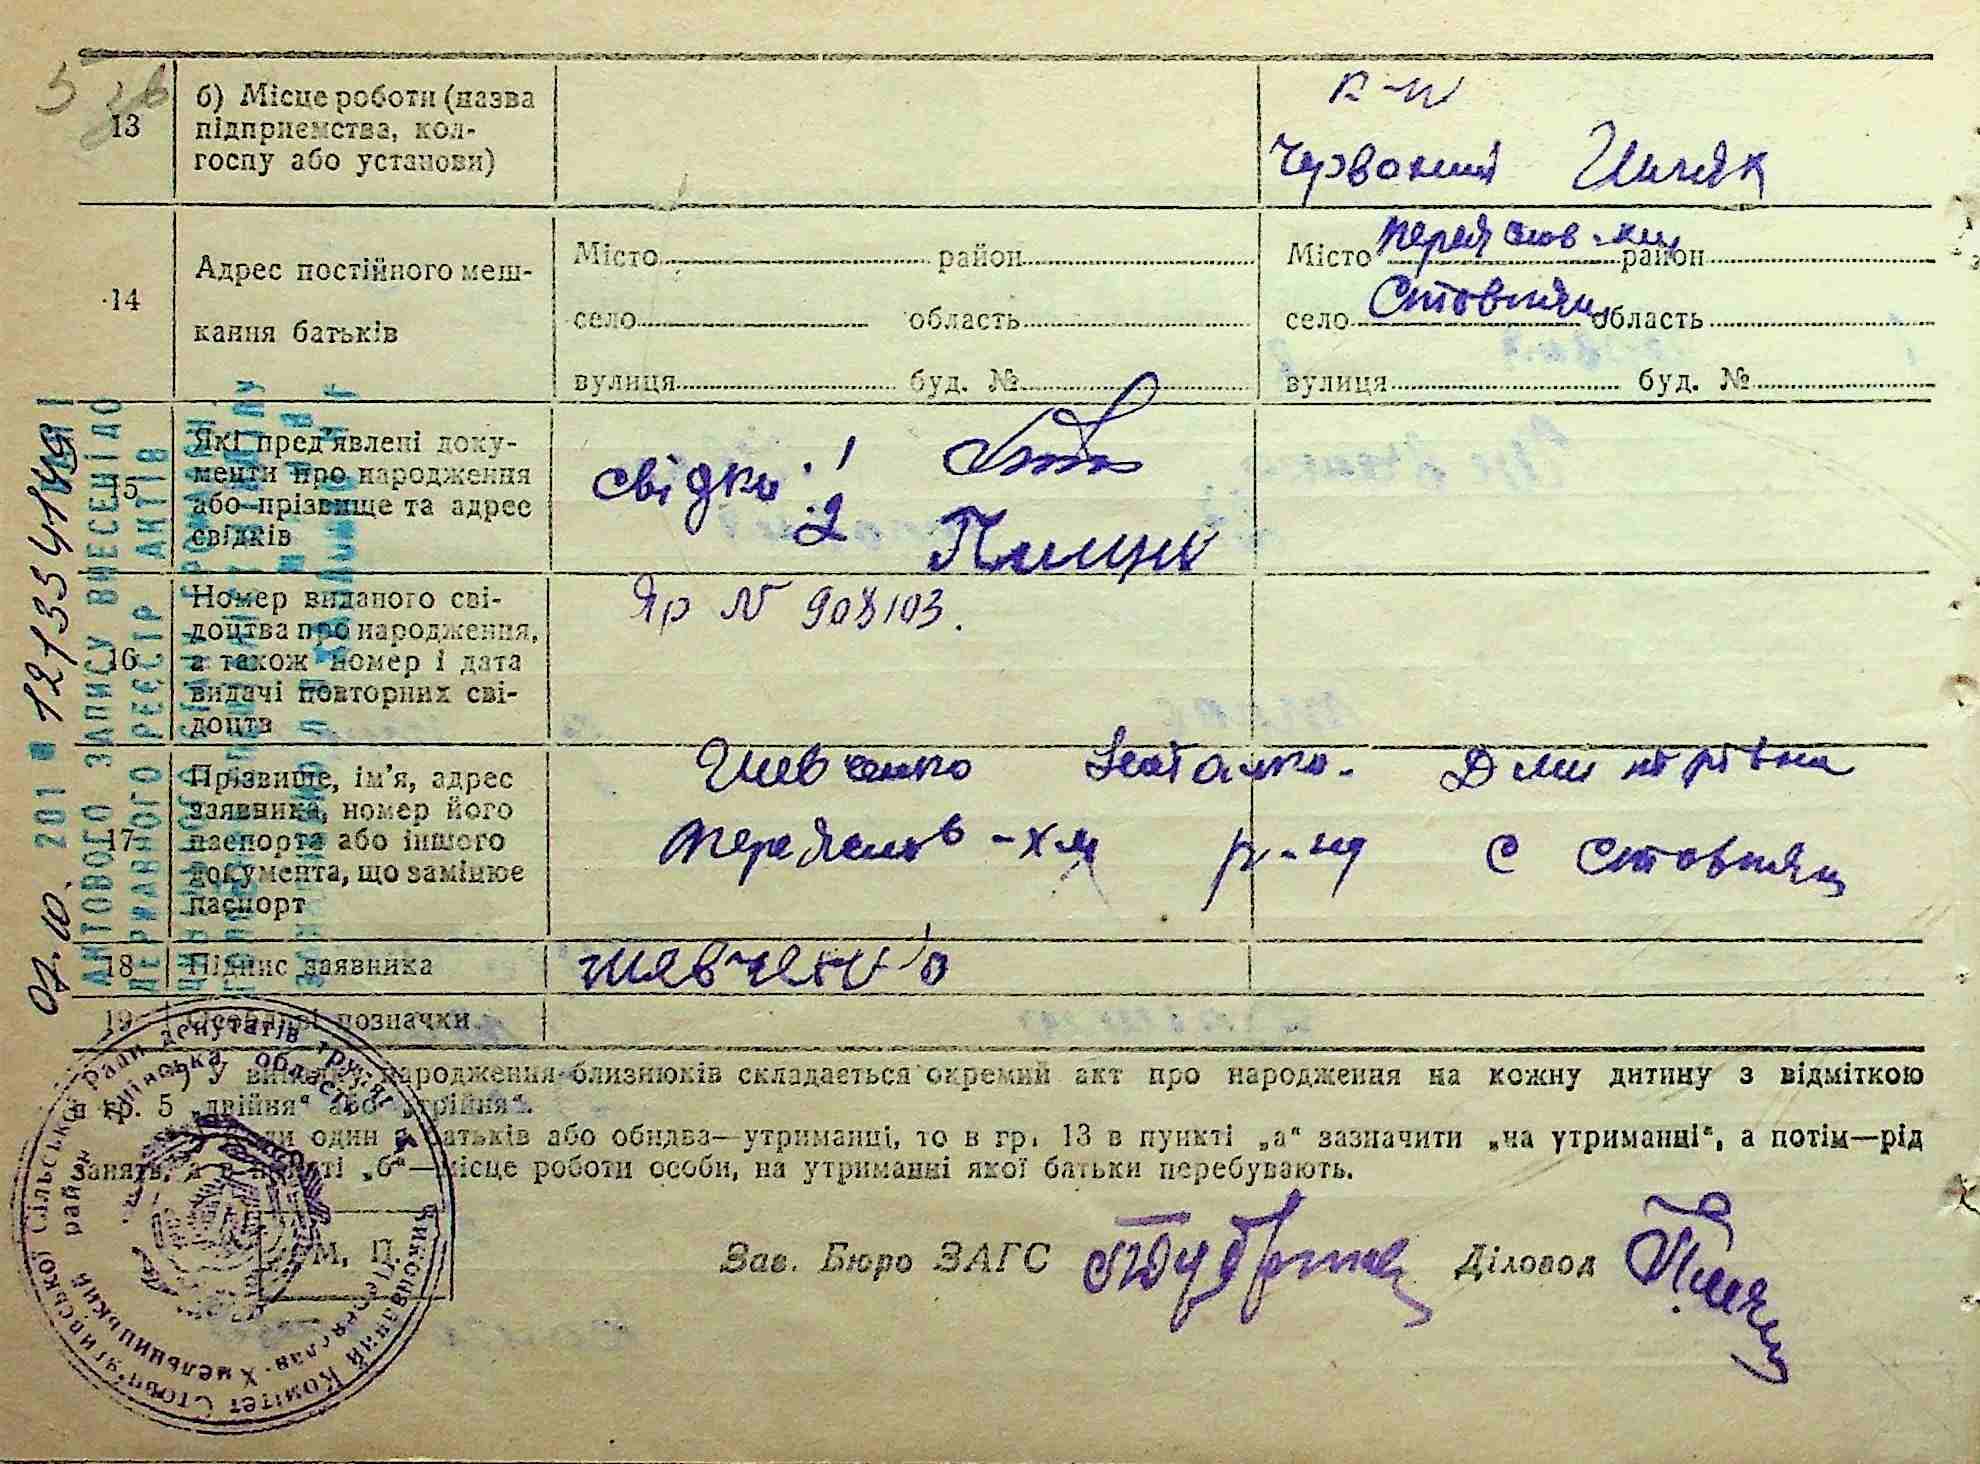 13
б) Місце роботи (назва
підприємства, кол-
госпу або установи)
к-п
Червоний Шлях
14
Адрес постійного меш-
кання батьків
Місто район
село область
вулиця буд. №
Місто район
село Стовпяги область
вулиця буд. №
15
Які пред'явлені доку-
менти про народження
або прізвище та адрес
свідків
свідки: 1
2
16
Номер виданого сві-
доцтва про народження,
а також номер і дата
видачі повторних сві-
доцтв
Яр № 908103.
17
Прізвище, ім'я, адрес
заявника, номер його
паспорта або іншого
документа, що замінює
паспорт
Шевченко Наталка Дмитрівна
Переяслов-Хм р-н с Стовпяги
18
Підпис заявника
Шевченко
19
Особливі позначки
*) У випадку народження близнюків складається окремий акт про народження на кожну дитину з відміткою
в гр. 5 „двійня“ або „трійня“.
один з батьків або обидва—утриманці, то в гр. 13 в пункті „а“ зазначити „на утриманні“, а потім—рід
занять, а в пункті „б“—місце роботи особи, на утриманні якої батьки перебувають.
М. П.
Зав. Бюро ЗАГС
Діловод
07.10. 201 12135414491
АКТОВОГО ЗАПИСУ ВНЕСЕНІ ДО
ДЕРЖАВНОГО РЕЄСТР АКТІВ
Виконавчий Комітет Стовп'ягівської Сільської Ради депутатів труд-их
Переяслав-Хмельницький район Київська область